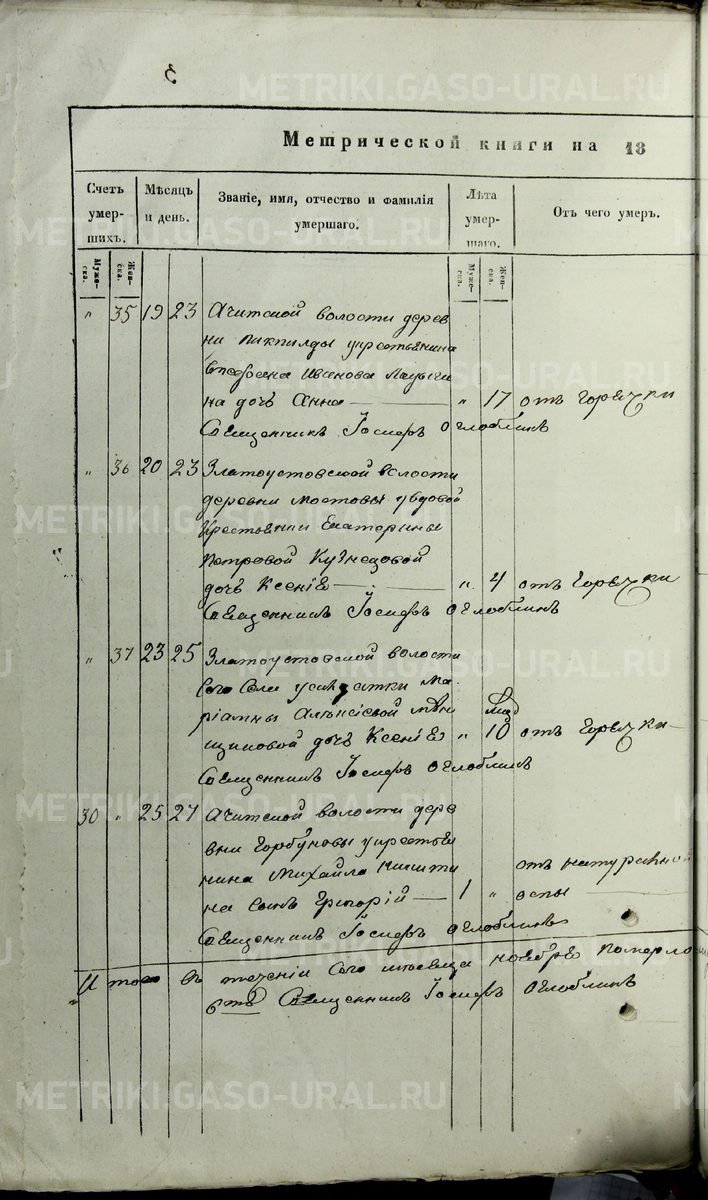 3
Метрической книги на 18
Счетъ умер-шихъ.
Мѣсяцъ и день.
Званіе, имя, отчество и фамилія умершаго.
Лѣта умер-шаго.
Отъ чего умеръ.
Муже-ска.
Жен-ска.
Муже-ска.
Жен-ска.
" 35 19 23 Ачитской волости дерев
ни у крестьянина
Иванова
на дочь Анна " 17 отъ горячки
Священникъ Іосифъ Оглоблинъ
" 36 20 23 Златоустовской волости
деревни Мостовы у вдовой
крестьянки Екатерины
Петровой Кузнецовой
дочь Ксенія " 4 отъ горячки
Священникъ Іосифъ Оглоблинъ
" 37 23 25 Златоустовской волости
сего села у солдатки Ма
ріамны Алексіевой
дочь Ксенія " 10 отъ горячки
Священникъ Іосифъ Оглоблинъ
30 " 25 27 Ачитской волости дере
вни Горбуновы у крестья
нина Михайла Никити
на сынъ Григорій 1 " отъ натуральной оспы
Священникъ Іосифъ Оглоблинъ
Итого въ теченіи сего месяца ноября померло
Священникъ Іосифъ Оглоблинъ
METRIKI.GASO-URAL.RU